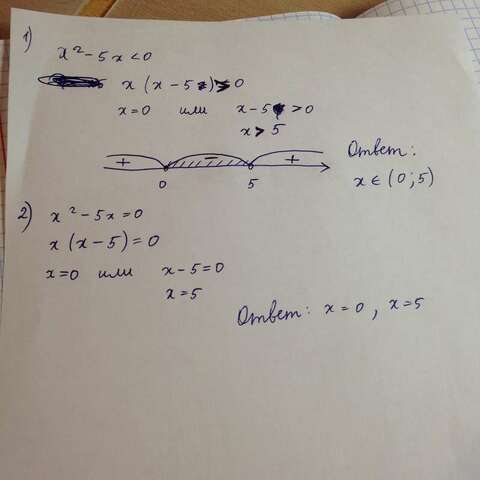 1)
x² - 5x < 0
x (x - 5) < 0
x = 0 или x - 5 > 0
x > 5
+ - +
0 5
Ответ:
x ∈ (0; 5)
2)
x² - 5x = 0
x (x - 5) = 0
x = 0 или x - 5 = 0
x = 5
Ответ: x = 0, x = 5